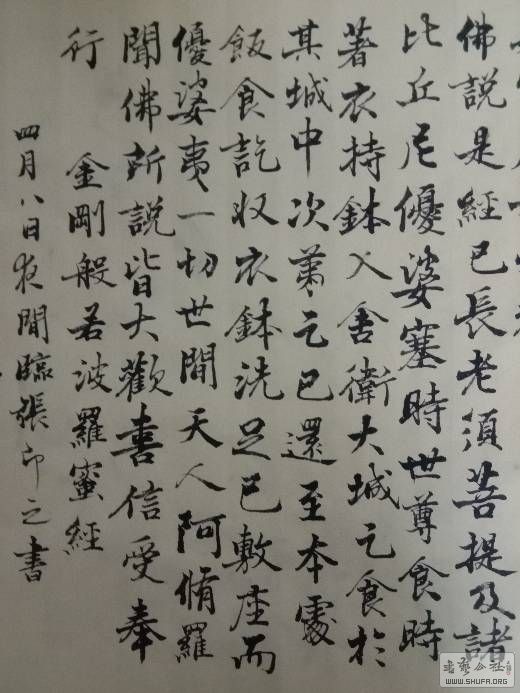 佛說是經已長老須菩提及諸
比丘尼優婆塞時世尊食時
著衣持鉢入舍衛大城乞食於
其城中次第乞已還至本處
飯食訖收衣鉢洗足已敷座而
優婆夷一切世間天人阿脩羅
聞佛所說皆大歡喜信受奉
行
金剛般若波羅蜜經
四月八日夜間臨張即之書
書藝公社
WWW.SHUFA.ORG